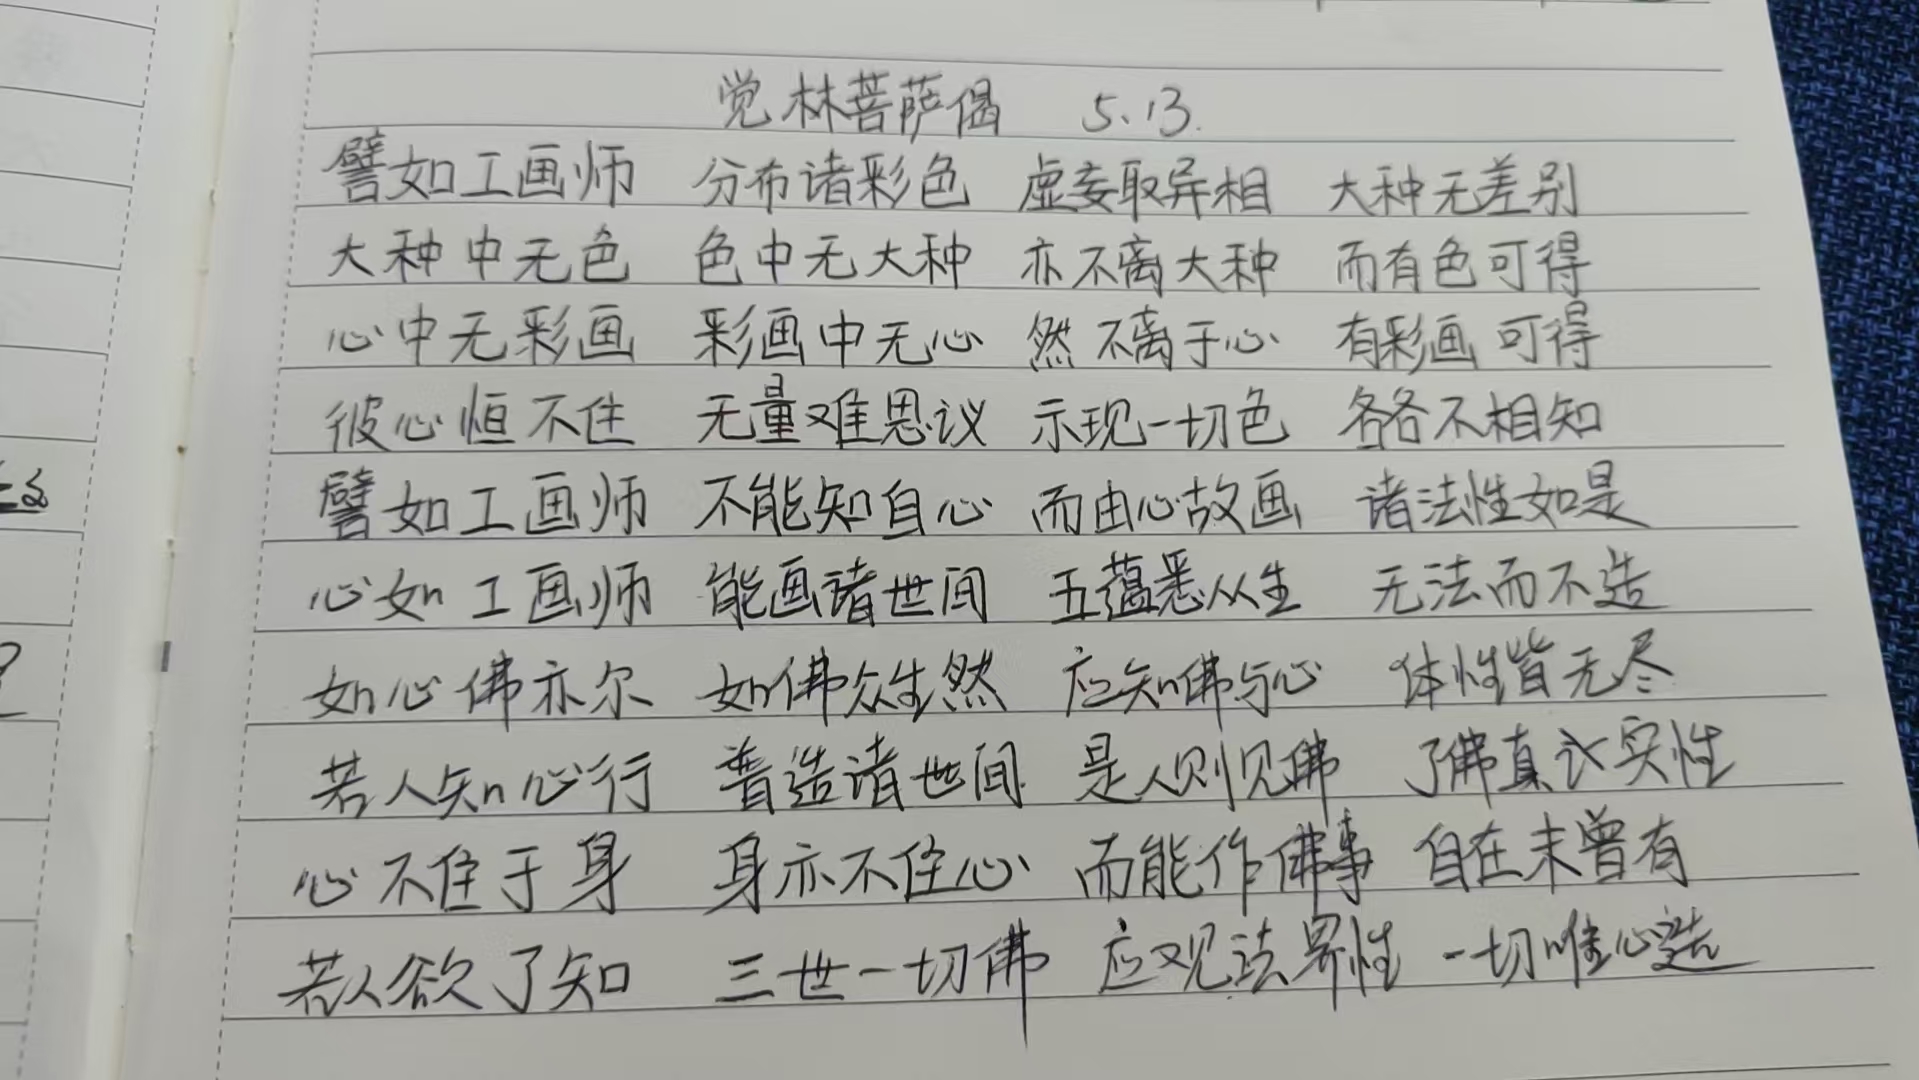 觉林菩萨偈 5.13.
譬如工画师 分布诸彩色 虚妄取异相 大种无差别
大种中无色 色中无大种 亦不离大种 而有色可得
心中无彩画 彩画中无心 然不离于心 有彩画可得
彼心恒不住 无量难思议 示现一切色 各各不相知
譬如工画师 不能知自心 而由心故画 诸法性如是
心如工画师 能画诸世间 五蕴悉从生 无法而不造
如心佛亦尔 如佛众生然 应知佛与心 体性皆无尽
若人知心行 普造诸世间 是人则见佛 了佛真实性
心不住于身 身亦不住心 而能作佛事 自在未曾有
若人欲了知 三世一切佛 应观法界性 一切唯心造